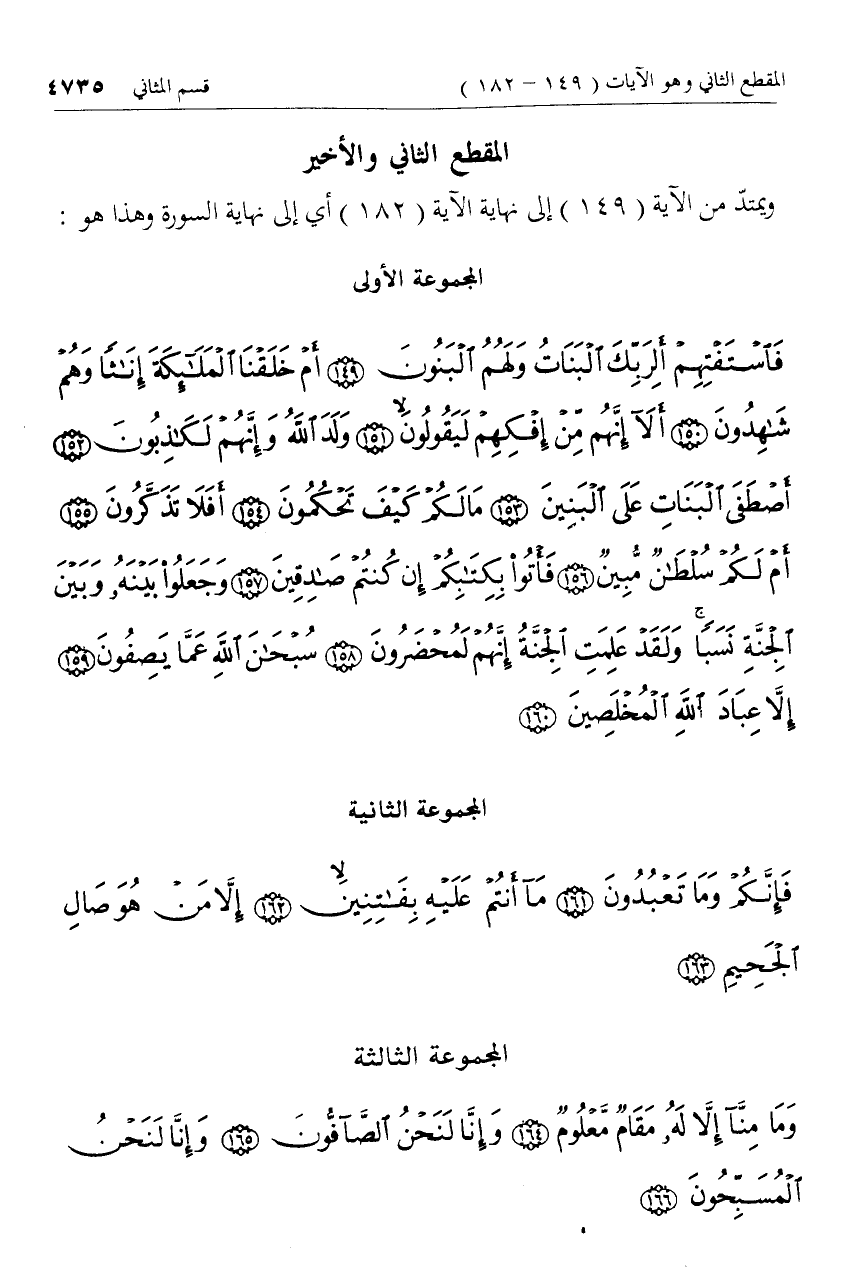 المقطع الثاني وهو الآيات ( ١٤٩ – ١٨٢ ) قسم المثاني ٤٧٣٥
المقطع الثاني والأخير
ويمتدّ من الآية ( ١٤٩ ) إلى نهاية الآية ( ١٨٢ ) أي إلى نهاية السورة وهذا هو :
المجموعة الأولى
فَٱسْتَفْتِهِمْ أَلِرَبِّكَ ٱلْبَنَاتُ وَلَهُمُ ٱلْبَنُونَ ١٤٩ أَمْ خَلَقْنَا ٱلْمَلَٰٓئِكَةَ إِنَٰثًا وَهُمْ
شَٰهِدُونَ ١٥٠ أَلَآ إِنَّهُم مِّنْ إِفْكِهِمْ لَيَقُولُونَۙ ١٥١ وَلَدَ ٱللَّهُ وَإِنَّهُمْ لَكَٰذِبُونَ ١٥٢
أَصْطَفَى ٱلْبَنَاتِ عَلَى ٱلْبَنِينَ ١٥٣ مَالَكُمْ كَيْفَ تَحْكُمُونَ ١٥٤ أَفَلَا تَذَكَّرُونَ ١٥٥
أَمْ لَكُمْ سُلْطَٰنٌ مُّبِينٌ ١٥٦ فَأْتُوا۟ بِكِتَٰبِكُمْ إِن كُنتُمْ صَٰدِقِينَ ١٥٧ وَجَعَلُوا۟ بَيْنَهُۥ وَبَيْنَ
ٱلْجِنَّةِ نَسَبًاۚ وَلَقَدْ عَلِمَتِ ٱلْجِنَّةُ إِنَّهُمْ لَمُحْضَرُونَ ١٥٨ سُبْحَٰنَ ٱللَّهِ عَمَّا يَصِفُونَ ١٥٩
إِلَّا عِبَادَ ٱللَّهِ ٱلْمُخْلَصِينَ ١٦٠
المجموعة الثانية
فَإِنَّكُمْ وَمَا تَعْبُدُونَ ١٦١ مَآ أَنتُمْ عَلَيْهِ بِفَٰتِنِينَۙ ١٦٢ إِلَّا مَنْ هُوَ صَالِ
ٱلْجَحِيمِ ١٦٣
المجموعة الثالثة
وَمَا مِنَّآ إِلَّا لَهُۥ مَقَامٌ مَّعْلُومٌ ١٦٤ وَإِنَّا لَنَحْنُ ٱلصَّآفُّونَ ١٦٥ وَإِنَّا لَنَحْنُ
ٱلْمُسَبِّحُونَ ١٦٦